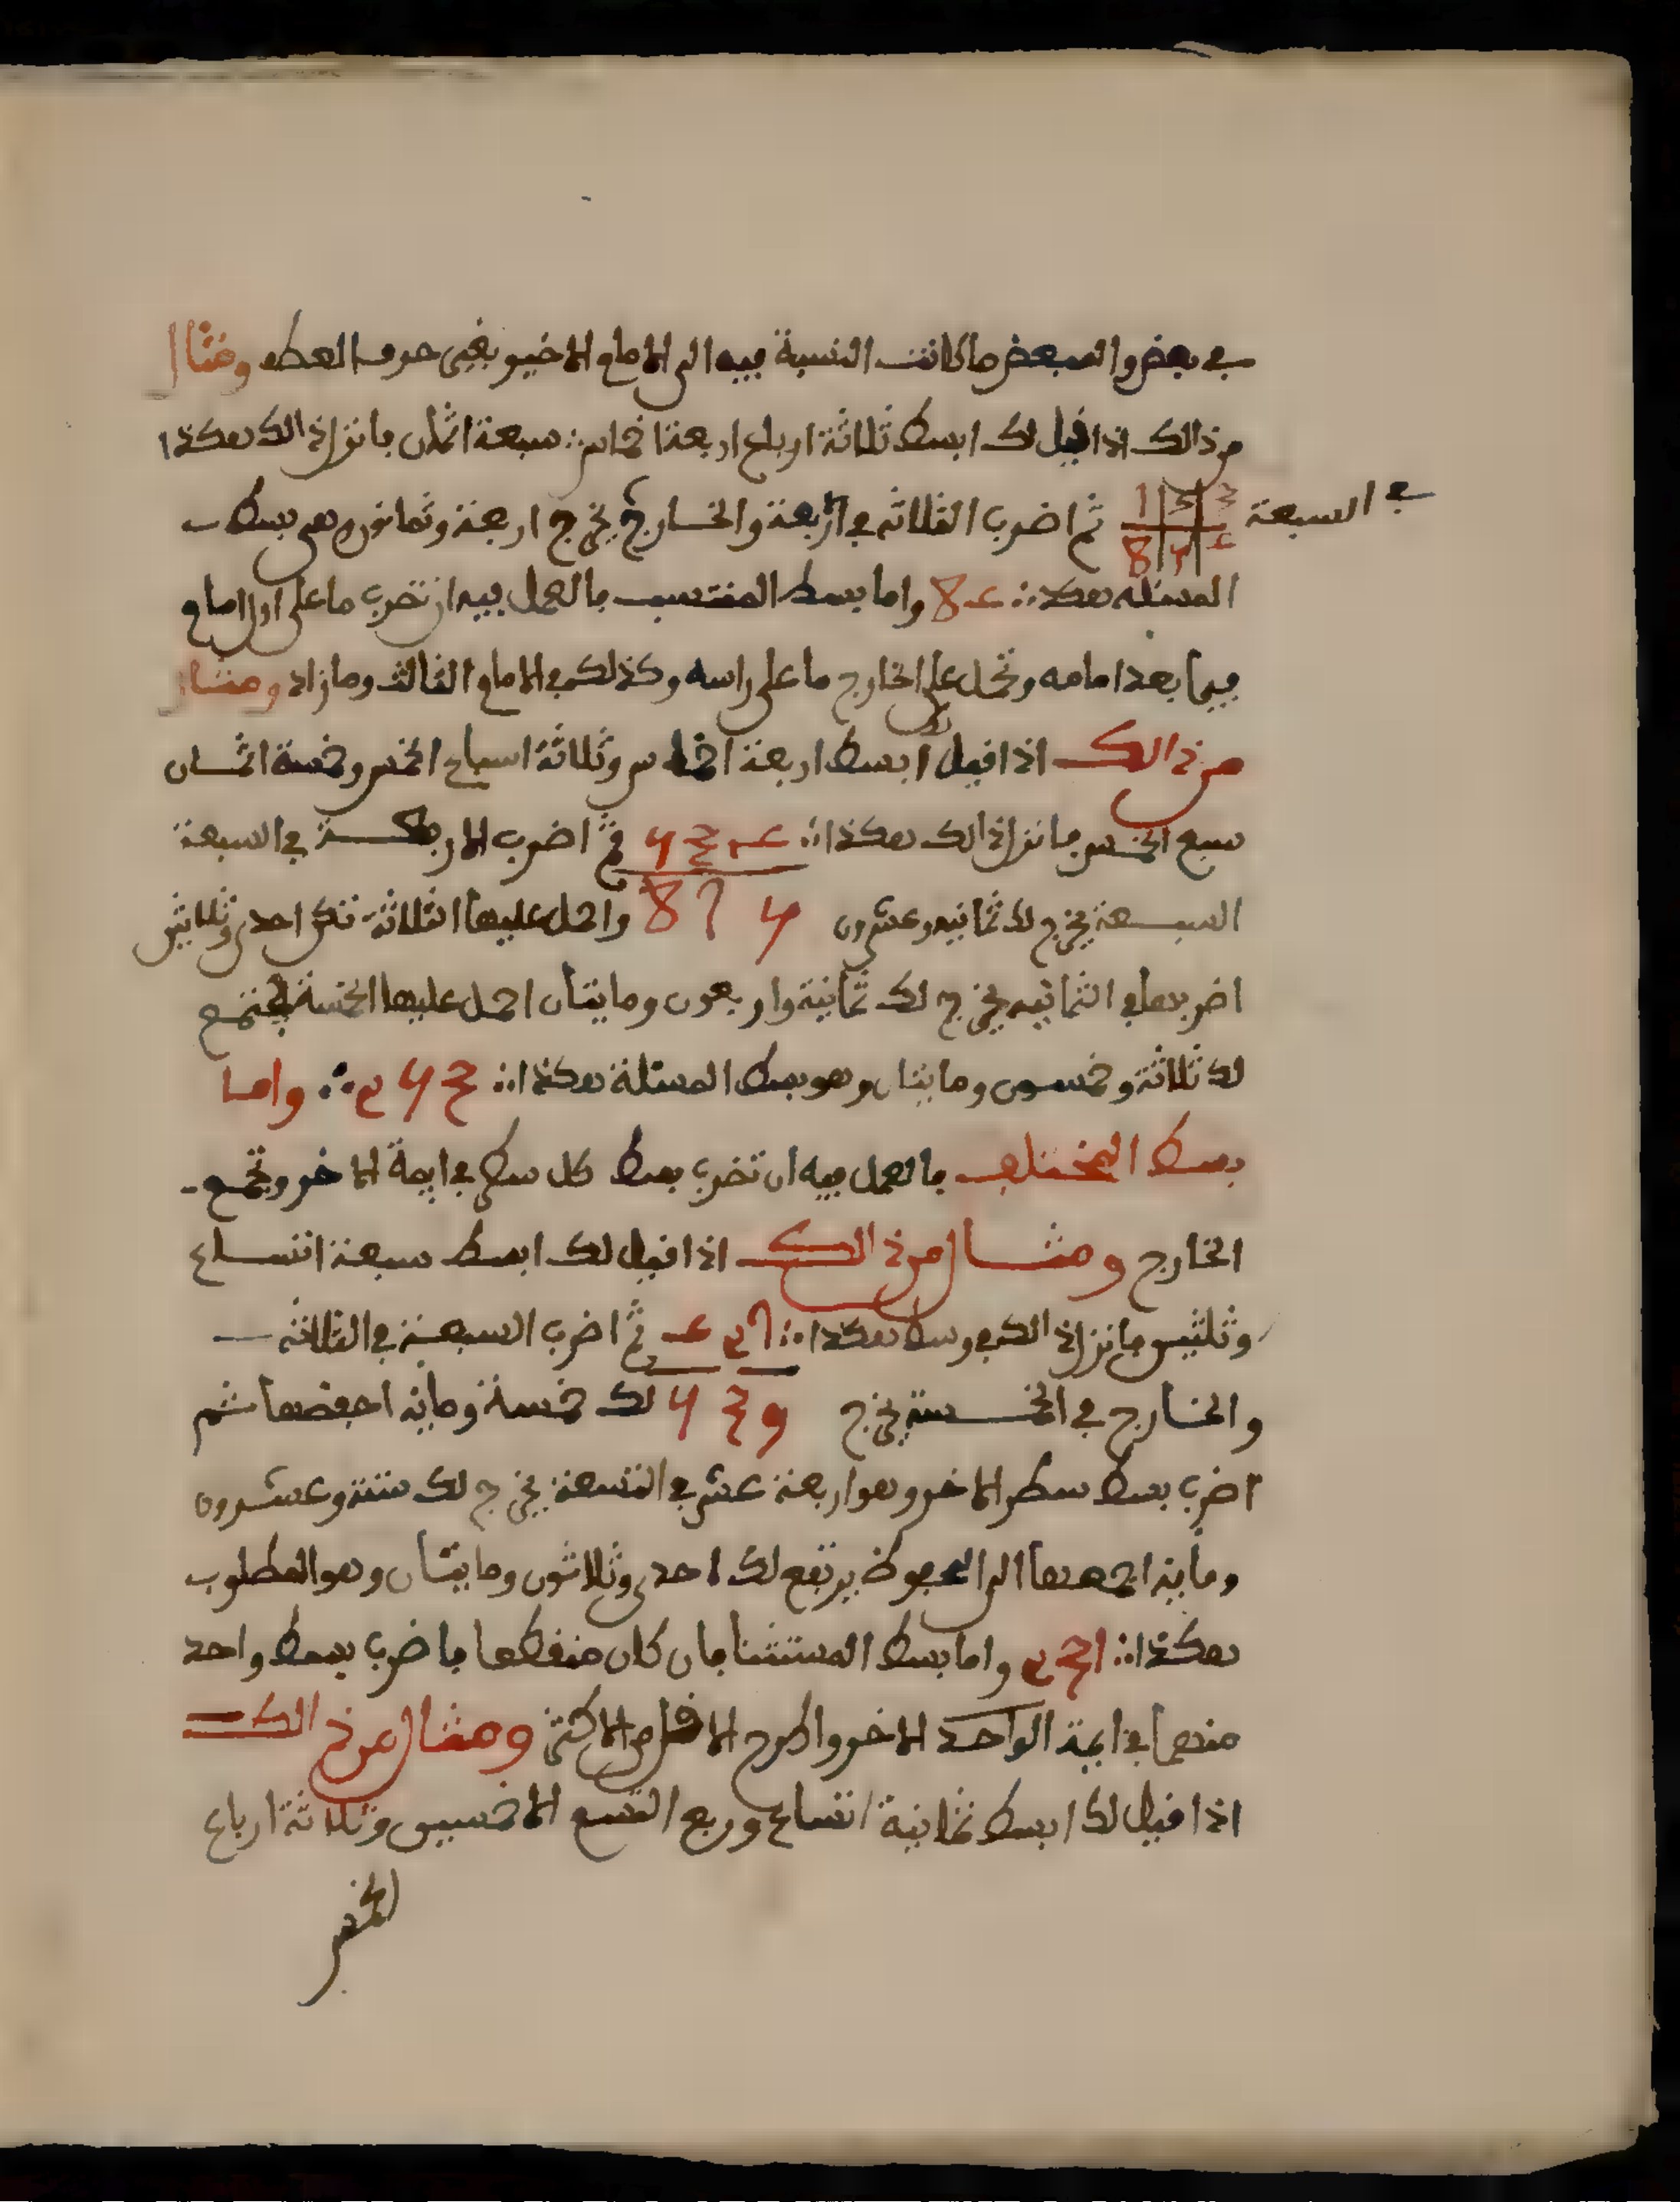 في بعض والمبعض ما كانت النسبة فيه الى الامام الاخير بغير حرف العطف ومثال
من ذالك اذا قيل لك ابسط ثلاثة ارباع اربعة اخماس سبعة اثمان فانزل ذالك هكذا
ثم اضرب الثلاثه في اربعة والخارج يخرج اربعة وثمانون وهي بسط
في السبعة
المسئله هكذ ∴ ٨٤ واما بسط المنتسب فالعمل فيه ان تضرب ما على اول امام
فيما بعد امامه وتحمل على الخارج ما على راسه وكذلك في الامام الثالث وما زاد ومثال
من ذالك اذا قيل لك ابسط اربعة اخماس وثلاثة اسباع الخمس وخمسة اثمان
سبع الخمس فانزل ذالك هكذا ∴ ٤ 3 5 ثم اضرب الاربعة في السبعة
السبعة يخرج لك ثمانيه وعشرون 5 7 8 واحمل عليها الثلاثة تكن احدى وثلاثين
اضربها في الثمانيه يخرج لك ثمانية واربعون ومايتان احمل عليها الخمسة يجتمع
لك ثلاثة وخمسون ومايتان وهو بسط المسئلة هكذا ∴ 3 5 2 ∴ واما
بسط المختلف فالعمل فيه ان تضرب بسط كل سطر في ايمة الاخر وتجمع
الخارج ومثال من ذالك اذا قيل لك ابسط سبعة اتساع
وثلثين فانزل ذالك هكذا ∴ ثم اضرب السبعة في الثلاثه
والخارج في الخمسة يخرج 9 3 5 لك خمسة وماية احفضها ثم
اضرب بسط سطر الاخر وهو اربعة عشر في التسعة يخرج لك ستة وعشرون
وماية اجمعها الى المحفوظ يرتفع لك احدى وثلاثون ومايتان وهو المطلوب
هكذا ∴ 1 3 2 واما بسط المستثنا فان كان منقطعا فاضرب بسط واحد
منهما في ايمة الواحد الاخر واطرح الاقل من الاكثر ومثال من ذالك
اذا قيل لك ابسط ثمانية اتساع وربع التسع الا خمسين وثلاثة ارباع
الخمس